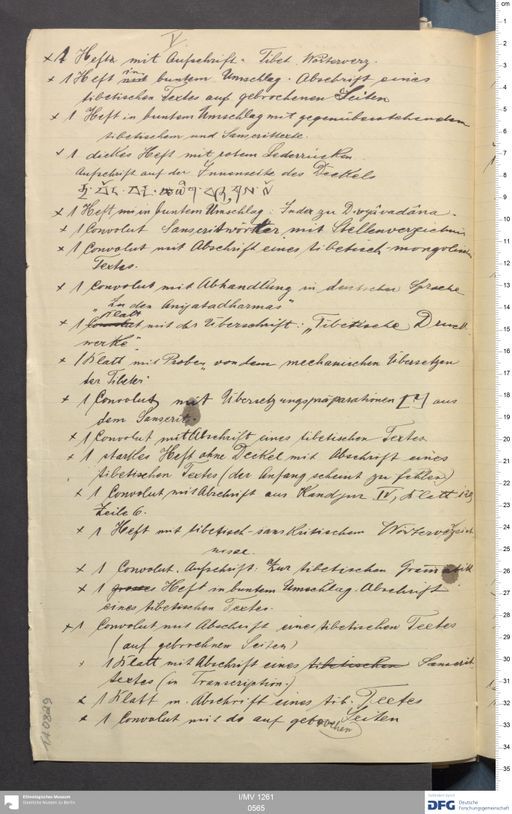 V
× 1 Hefte mit Aufschrift: Tibet. Wörterverz.
× 1 Heft in buntem Umschlag. Abschrift eines
tibetischen Textes auf gebrochenen Seiten
× 1 Heft in buntem Umschlag mit gegenüberstehendem
tibetischem und Sanscrittexte.
× 1 dickes Heft mit rotem Lederrücken.
Aufschrift auf der Innenseite des Deckels
× 1 Heft in buntem Umschlag: Index zu Divyâvadâna.
× 1 Convolut Sanscritwörter mit Stellenverzeichnis
× 1 Convolut mit Abschrift eines tibetisch-mongolischen
Textes.
× 1 Convolut mit Abhandlung in deutscher Sprache
„Zu den Aniyatadharmas"
× 1 Blatt mit der Überschrift: „Tibetische Druck-
werke".
× 1 Blatt mit Proben von dem mechanischen Übersetzen
der Tibeter
× 1 Convolut mit Übersetzungspräparationen [?] aus
dem Sanscrit.
× 1 Convolut mit Abschrift eines tibetischen Textes
× 1 starkes Heft ohne Deckel mit Abschrift eines
tibetischen Textes (der Anfang scheint zu fehlen)
× 1 Convolut mit Abschrift aus Kandjur IV, Blatt
Zeile 6.
× 1 Heft mit tibetisch-sanskritischem Wörterverzeich-
nisse.
× 1 Convolut. Aufschrift: Zur tibetischen Grammatik
× 1 Heft in buntem Umschlag. Abschrift
eines tibetischen Textes.
× 1 Convolut mit Abschrift eines tibetischen Textes
(auf gebrochenen Seiten)
× 1 Blatt mit Abschrift eines tibetischen Sanscrit-
textes (in Transcription.)
× 1 Blatt m. Abschrift eines tib. Textes
× 1 Convolut mit do auf gebrochen Seiten
Ethnologisches Museum
Staatliche Museen zu Berlin
I/MV 1261
0565
DFG Deutsche
Forschungsgemeinschaft